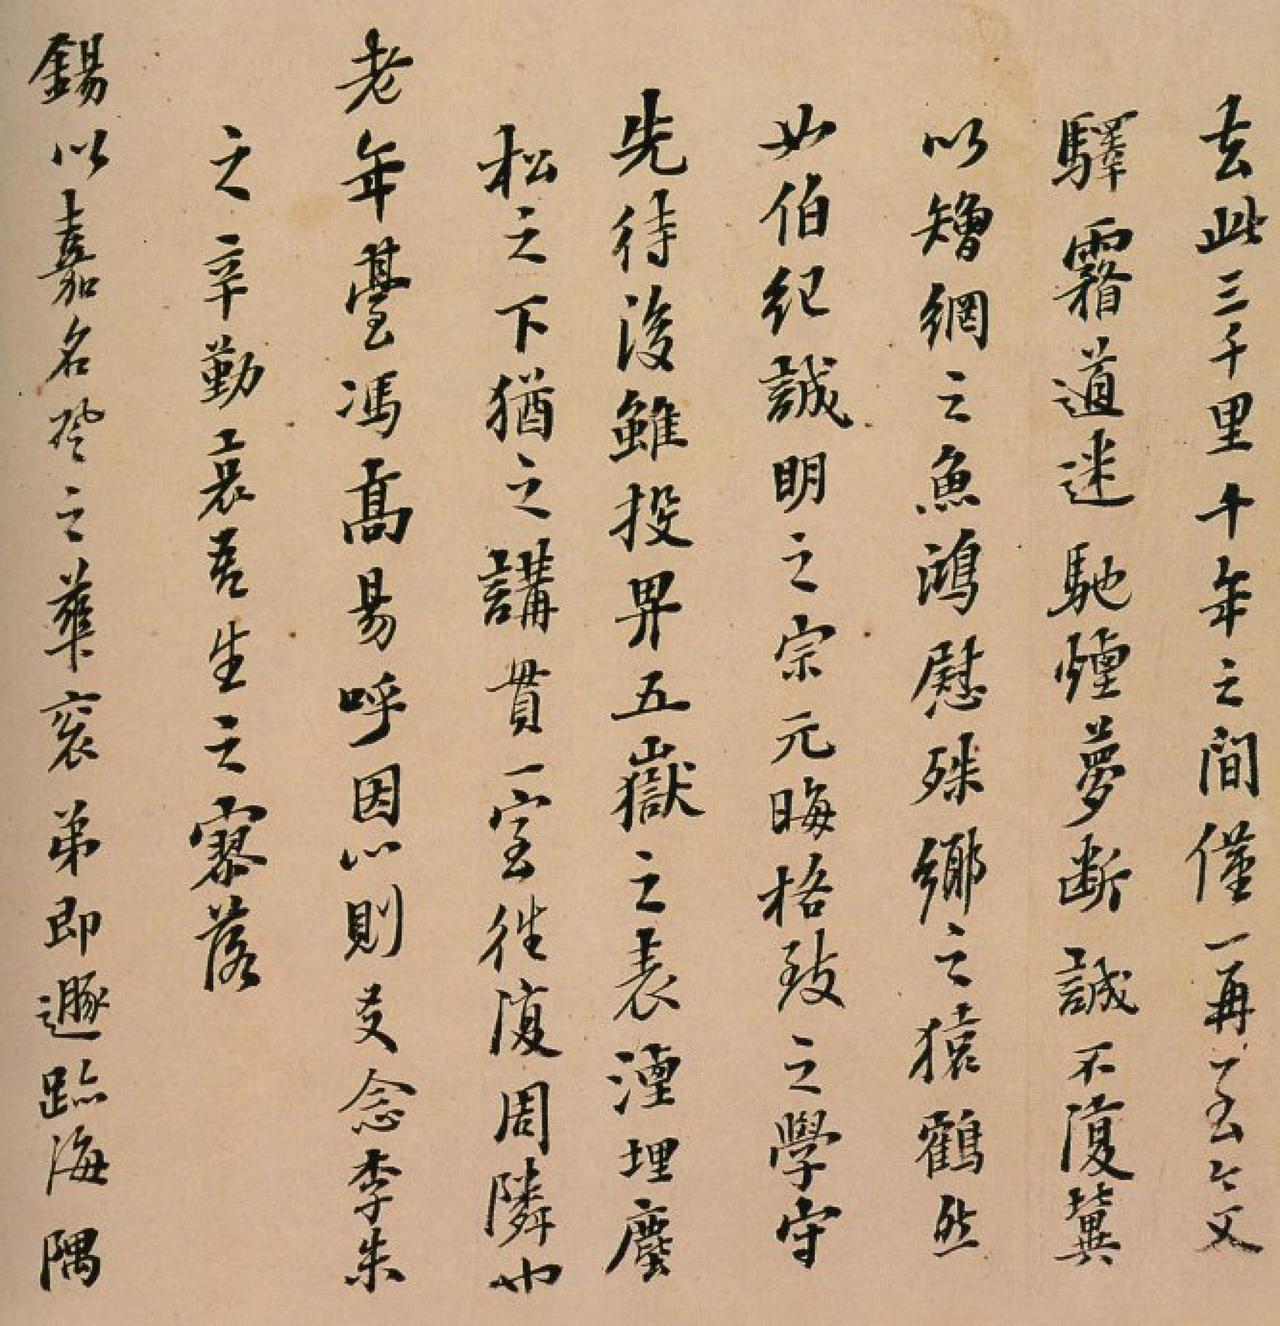 去此三千里千年之間僅一再至今又
驛霧道迷馳煙夢斷誠不復冀
以矰網之魚鴻慰殊鄉之猿鶴然
如伯紀誠明之宗元晦格致之學守
先待後雖投畀五嶽之表湮埋塵
松之下猶之講貫一室徃復周隣也
老年臺馮高易呼因心則友念李朱
之辛勤哀吾生之寥落
錫以嘉名登之華衮弟即遯跡海隅